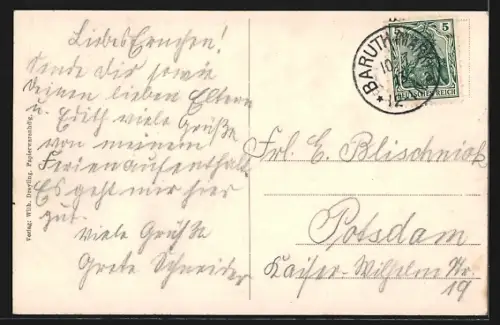 Liebes Ernchen!
Sende dir sowie
deinen lieben Eltern
u. Edith viele Grüße
von meinem
Ferienaufenthalt.
Es geht mir hier
gut.
Viele Grüße
Grete Schneider
BARUTH (MARK)
10
12
5
DEUTSCHES REICH
Frl. E. Blischniok
Potsdam
Kaiser-Wilhelm Str.
19
Verlag: Wilh. Papierwarenhdlg.